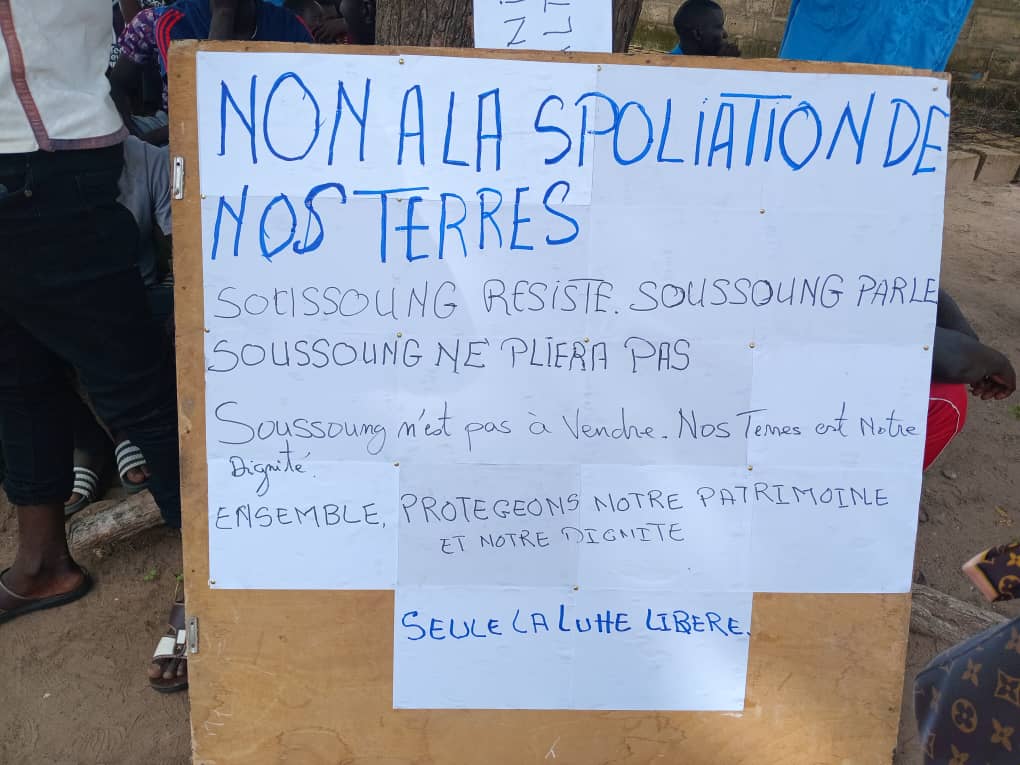 NON A LA SPOLIATION DE
NOS TERRES
SOUSSOUNG RESISTE. SOUSSOUNG PARLE
SOUSSOUNG NE PLIERA PAS
Soussoung n'est pas à Vendre. Nos Terres est Notre
Dignité.
ENSEMBLE, PROTEGEONS NOTRE PATRIMOINE
ET NOTRE DIGNITE
SEULE LA LUTTE LIBERE.